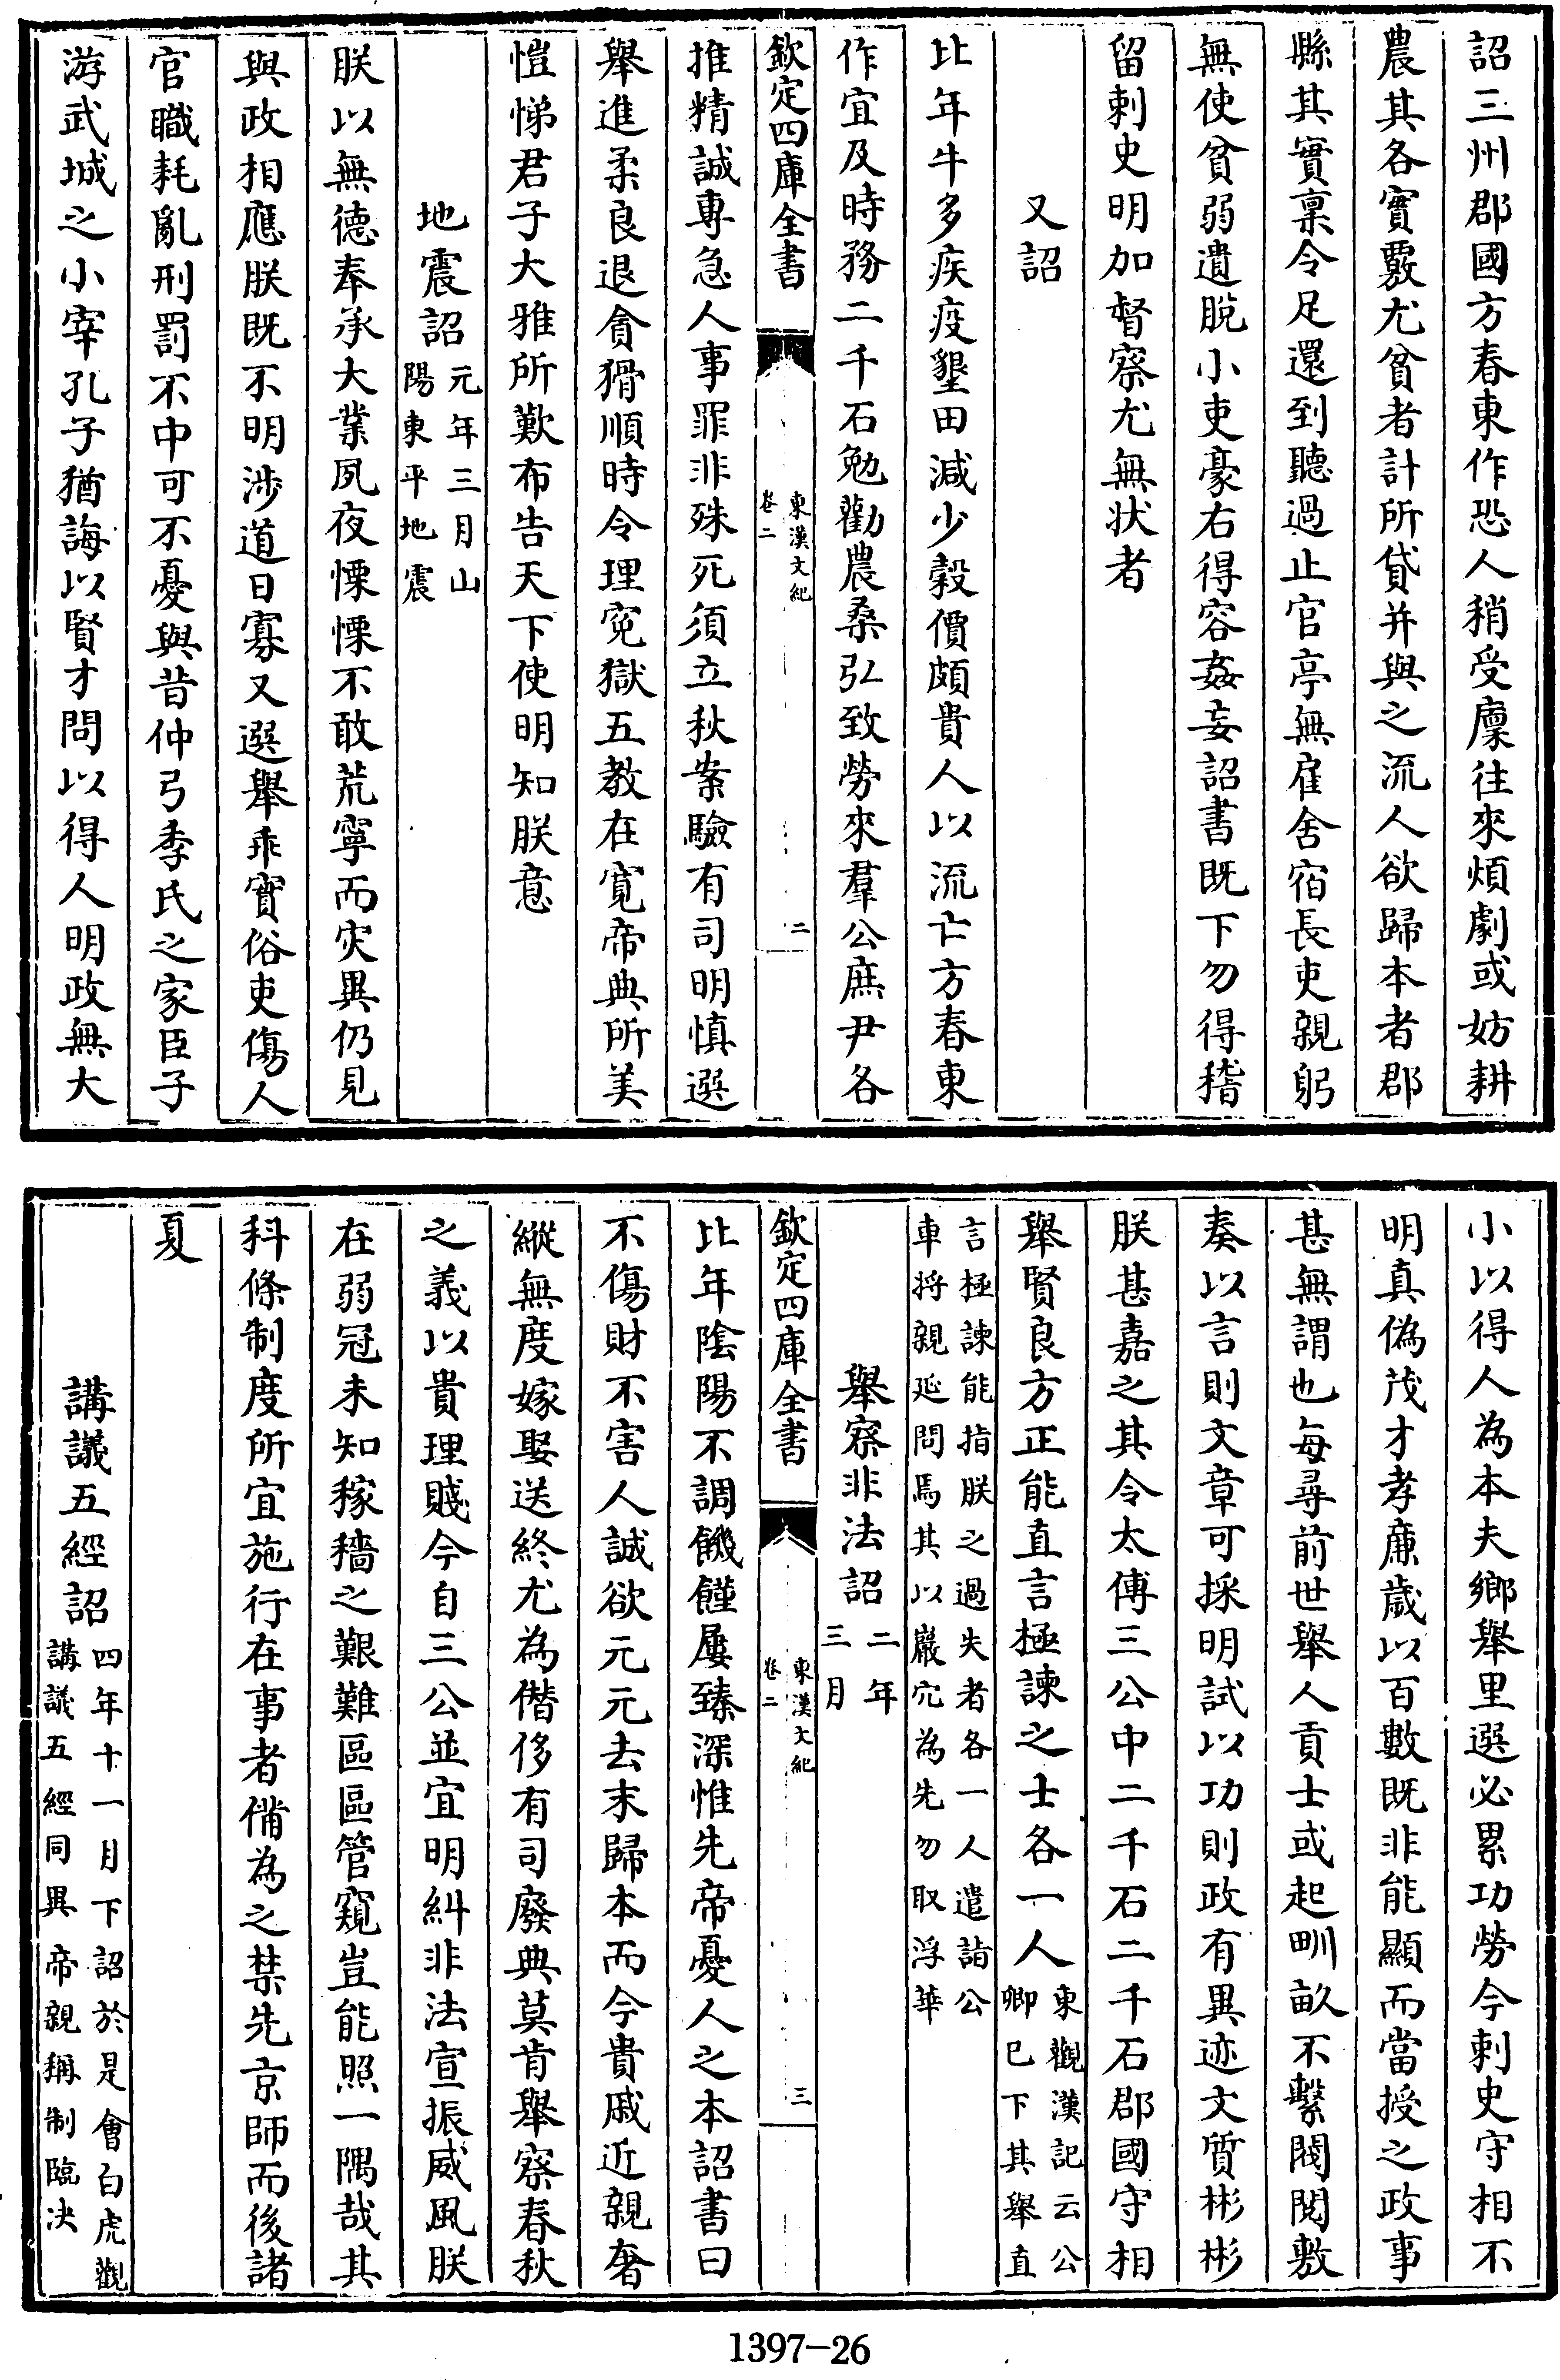 詔三州郡國方春東作恐人稍受廩往來煩劇或妨耕
農其各實覈尤貧者計所貸并與之流人欲歸本者郡
縣其實稟令足還到聽過止官亭無雇舍宿長吏親躬
無使貧弱遺脫小吏豪右得容姦妄詔書既下勿得稽
留刺史明加督察尤無狀者
又詔
比年牛多疾疫墾田減少穀價頗貴人以流亡方春東
作宜及時務二千石勉勸農桑弘致勞來羣公庶尹各
欽定四庫全書
東漢文紀
卷二
二
推精誠專急人事罪非殊死須立秋案驗有司明慎選
舉進柔良退貪猾順時令理寃獄五教在寬帝典所美
愷悌君子大雅所歎布告天下使明知朕意
地震詔元年三月山
陽東平地震
朕以無德奉承大業夙夜慄慄不敢荒寧而灾異仍見
與政相應朕既不明涉道日寡又選舉乖實俗吏傷人
官職耗亂刑罰不中可不憂與昔仲弓季氏之家臣子
游武城之小宰孔子猶誨以賢才問以得人明政無大
小以得人為本夫鄉舉里選必累功勞今刺史守相不
明真偽茂才孝廉歲以百數既非能顯而當授之政事
甚無謂也每尋前世舉人貢士或起甽畝不繫閥閱敷
奏以言則文章可採明試以功則政有異迹文質彬彬
朕甚嘉之其令太傅三公中二千石二千石郡國守相
舉賢良方正能直言極諫之士各一人東觀漢記云公
卿已下其舉直
言極諫能指朕之過失者各一人遣詣公
車将親延問焉其以巖穴為先勿取浮華
舉察非法詔二年
三月
欽定四庫全書
東漢文紀
卷二
三
比年陰陽不調饑饉屢臻深惟先帝憂人之本詔書曰
不傷財不害人誠欲元元去末歸本而今貴戚近親奢
縱無度嫁娶送終尤為僭侈有司廢典莫肯舉察春秋
之義以貴理賤今自三公並宜明糾非法宣振威風朕
在弱冠未知稼穡之艱難區區管窺豈能照一隅哉其
科條制度所宜施行在事者備為之禁先京師而後諸
夏
講議五經詔四年十一月下詔於是會白虎觀
講議五經同異帝親稱制臨决
1397-26